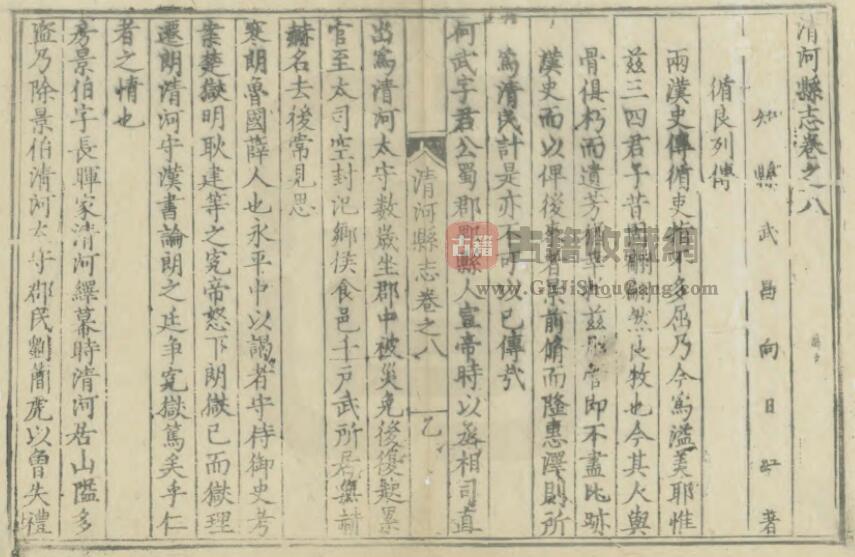 清河縣志卷之八
知縣武昌向日紅著
循良列傳
兩漢史傳循吏指不多屈乃今為溢美耶惟
茲三四君子昔翩翩然良牧也今其人與
骨俱朽而遺芳茲即不盡比跡
漢史而以俾後者景前脩而隆惠澤則所
為清民計是亦不可以已傳哉
清河縣志卷之八
乙
何武字君公蜀郡郫縣人宣帝時以丞相司直
出為清河太守數歲坐郡中被災免後復起累
官至大司空封氾鄉侯食邑千戶武所居無赫
赫名去後常見思
寒朗魯國薛人也永平中以謁者守侍御史考
案楚獄明耿建等之冤帝怒下朗獄已而獄理
遷朗清河守漢書論朗之廷爭冤獄篤矣乎仁
者之情也
房景伯字長暉家清河繹幕時清河居山隘多
盜乃除景伯清河太守郡民劉蕳虎以曾失禮
古籍
古籍收藏網
www.GuJiShouCang.com